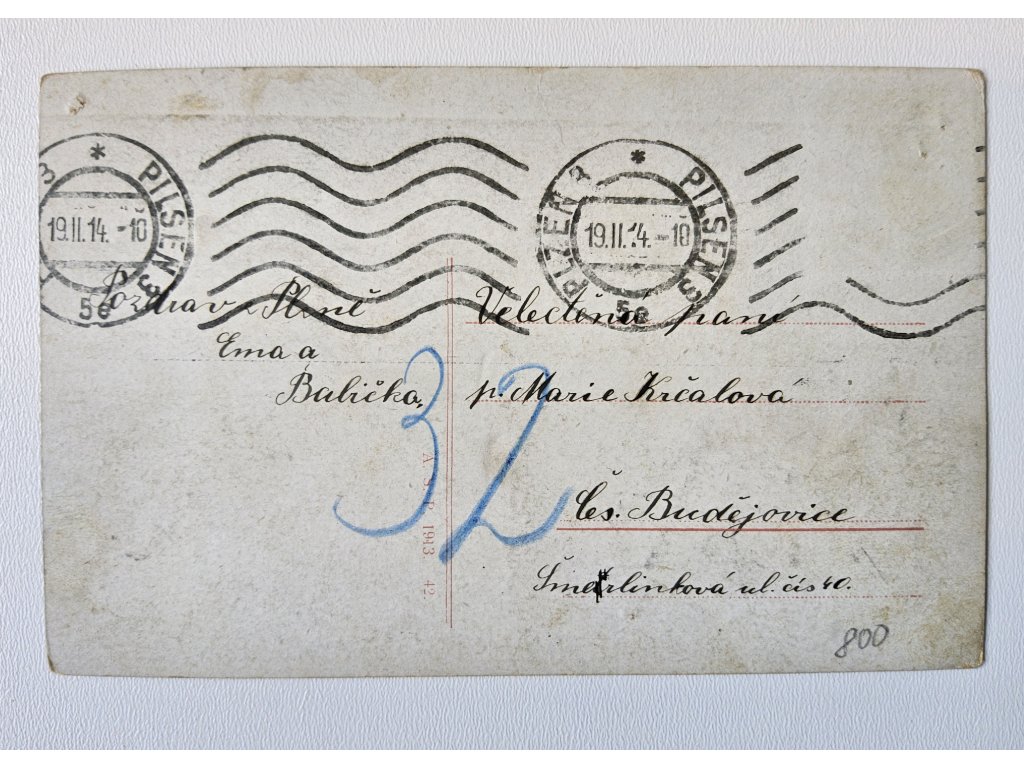 3 * PILSEN 3
19.II.14.-10
5a
PLZEN 3 * PILSEN 3
19.II.14.-10
5a
Pozdrav z Plzně
Ema a
Babička,
Veledůstojná paní
p. Marie Krčalová
Čes. Budějovice
Šmerlinková ul. čís 40.
32
A. S. P. 1913 42
800